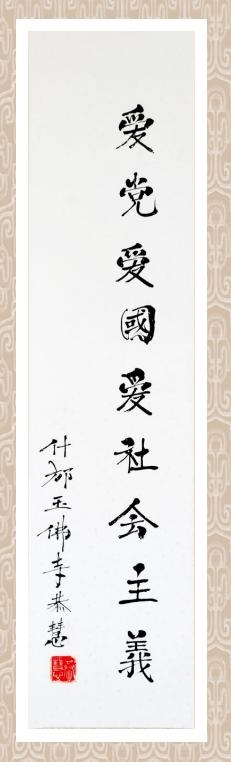 爱党爱國爱社会主義
什邡玉佛寺恭慧